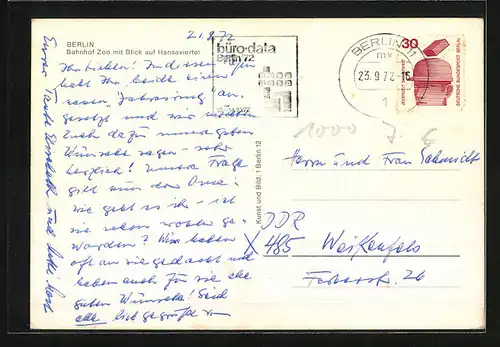 21.9.72
BERLIN
Bahnhof Zoo mit Blick auf Hansaviertel
Ihr Lieben! Inzwischen
habt Ihr beide einen
neuen Jahresring an-
gesetzt und wir
Euch dazu unsere guten
Wünsche sagen - sehr
herzlich! Unsere Frage
gilt nun der Oma:
wie geht es ihr - ist
sie schon wohler ge-
worden? Wir haben
oft an sie gedacht und
haben auch für sie alle
guten Wünsche! Seid
alle lieb gegrüßt von
Eurer Tante Elisabeth und
büro-data
Berlin 72
BERLIN 11
mv
23.9.72-16
1
30
DEUTSCHE BUNDESPOST BERLIN
1000
Kunst und Bild, 1 Berlin 12
Herrn und Frau Schmidt
DDR
X 485 Weißenfels
26